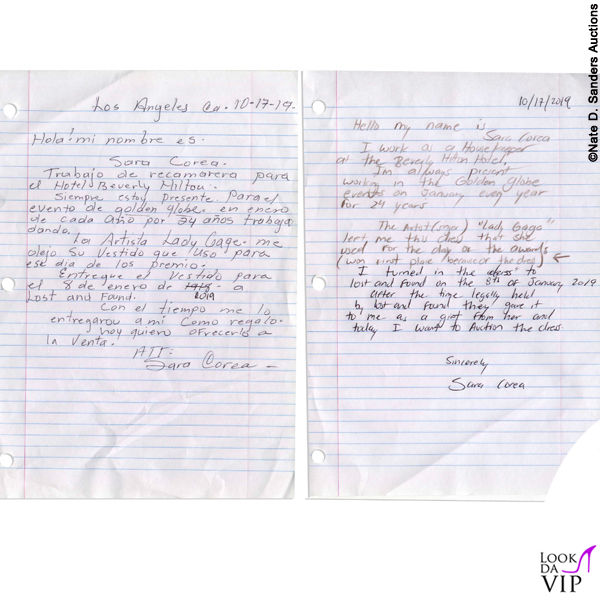 ©Nate D. Sanders Auctions
Los Angeles Ca. 10-17-19.
Hola! mi nombre es.
Sara Corea.
Trabajo de recamarera para
el Hotel Beverly Hiltou.
Siempre estoy presente para el
evento de golden globe. en enero
de cada año por 24 años trabaja
dando.
la Artista Lady Gage. me
dejo su Vestido que Uso para
ese dia de los premio.
Entregue el Vestido para
el 8 de enero de a
2019
Lost and Fand.
Con el tiempo me lo
entregarou a mi como regalo.
hoy quiero ofrecerlo a
la Venta.
ATT:
Sara Corea -
10/17/2019
Hello my name is
Sara Corea
I work as a Housekeeper
at the Beverly Hilton Hotel,
I'm always present
working in the Golden Globe
events on January every year
for 24 years
The Artist (singer) "Lady Gaga"
left me this dress that she
used For the day of the awards
(won first place because of the dress) ←
I turned in the dress to
lost and found on the 8th of January 2019.
after the time legally held
by lost and found they gave it
to me as a gift from her and
today I want to Auction the dress.
Sincerely
Sara Corea
LOOK
DA
VIP